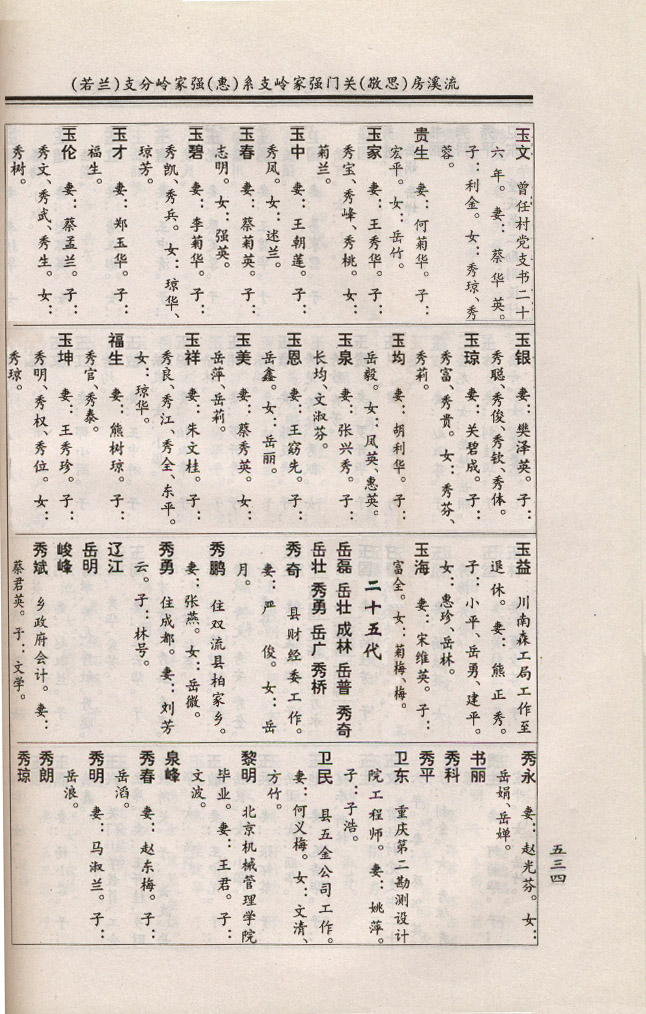 流溪房(敬思)关门强家岭支系(惠)强家岭分支(若兰)
玉文 曾任村党支书二十
六年。妻：蔡华英。
子：利金。女：秀琼、秀
蓉。
贵生 妻：何菊华。子：
宏平。女：岳竹。
玉家 妻：王秀华。子：
秀宝、秀峰、秀桃。女：
菊兰。
玉中 妻：王朝莲。子：
秀凤。女：述兰。
玉春 妻：蔡菊英。子：
志明。女：强英。
玉碧 妻：李菊华。子：
秀凯、秀兵。女：琼华、
琼芳。
玉才 妻：郑玉华。子：
福生。
玉伦 妻：蔡孟兰。子：
秀文、秀武、秀生。女：
秀树。
玉银 妻：樊泽英。子：
秀聪、秀俊、秀钦、秀体。
玉琼 妻：关碧成。子：
秀富、秀贵。女：秀芬、
秀莉。
玉均 妻：胡利华。子：
岳毅。女：凤英、惠英。
玉泉 妻：张兴秀。子：
长均、文淑芬。
玉恩 妻：王窈先。子：
岳鑫。女：岳丽。
玉美 妻：蔡秀英。女：
岳萍、岳莉。
玉祥 妻：朱文桂。子：
秀良、秀江、秀全、东平。
女：琼华。
福生 妻：熊树琼。子：
秀官、秀泰。
玉坤 妻：王秀珍。子：
秀明、秀权、秀位。女：
秀琼。
玉益 川南森工局工作至
退休。妻：熊正秀。
子：小平、岳勇、建平。
女：惠珍、岳林。
玉海 妻：宋维英。子：
富全。女：菊梅、梅。
二十五代
岳磊 岳壮 成林 岳普 秀奇
岳壮 秀勇 岳广 秀桥
秀奇 县财经委工作。
妻：严俊。女：岳
月。
秀鹏 住双流县柏家乡。
妻：张燕。女：岳微。
秀勇 住成都。妻：刘芳
云。子：林号。
辽江
岳明
峻峰
秀斌 乡政府会计。妻：
蔡君英。子：文学。
秀永 妻：赵光芬。女：
岳娟、岳婵。
书丽
秀科
秀平
卫东 重庆第二勘测设计
院工程师。妻：姚萍。
子：子浩。
卫民 县五金公司工作。
妻：何义梅。女：文清、
方竹。
黎明 北京机械管理学院
毕业。妻：王君。子：
文波。
泉峰
秀春 妻：赵东梅。子：
岳滔。
秀明 妻：马淑兰。子：
岳浪。
秀朗
秀琼
五三四